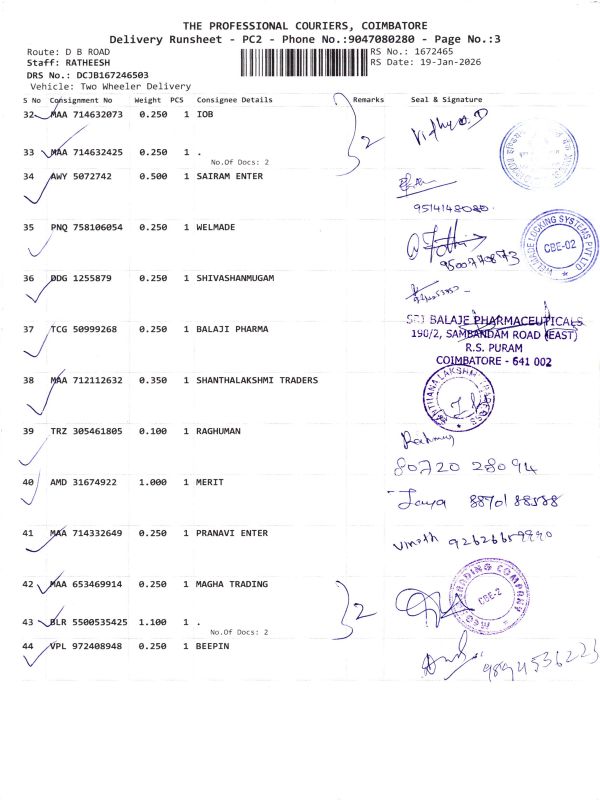 THE PROFESSIONAL COURIERS, COIMBATORE
Delivery Runsheet - PC2 - Phone No.:9047080280 - Page No.:3
Route: D B ROAD
RS No.: 1672465
Staff: RATHEESH
RS Date: 19-Jan-2026
DRS No.: DCJB167246503
Vehicle: Two Wheeler Delivery
S No Consignment No Weight PCS Consignee Details Remarks Seal & Signature
32 MAA 714632073 0.250 1 IOB
33 MAA 714632425 0.250 1 .
No.Of Docs: 2
2
34 AWY 5072742 0.500 1 SAIRAM ENTER
9514148080
35 PNQ 758106054 0.250 1 WELMADE
WELMADE LOCKING SYSTEMS PVT LTD
CBE-02
36 DDG 1255879 0.250 1 SHIVASHANMUGAM
37 TCG 50999268 0.250 1 BALAJI PHARMA
SRI BALAJE PHARMACEUTICALS
190/2, SAMBANDAM ROAD (EAST)
R.S. PURAM
COIMBATORE - 641 002
38 MAA 712112632 0.350 1 SHANTHALAKSHMI TRADERS
39 TRZ 305461805 0.100 1 RAGHUMAN
80720 28094
40 AMD 31674922 1.000 1 MERIT
Jaya 8870188588
41 MAA 714332649 0.250 1 PRANAVI ENTER
42 MAA 653469914 0.250 1 MAGHA TRADING
TRADING COMPANY
CBE-2
43 BLR 5500535425 1.100 1 .
No.Of Docs: 2
2
44 VPL 972408948 0.250 1 BEEPIN
9894536223